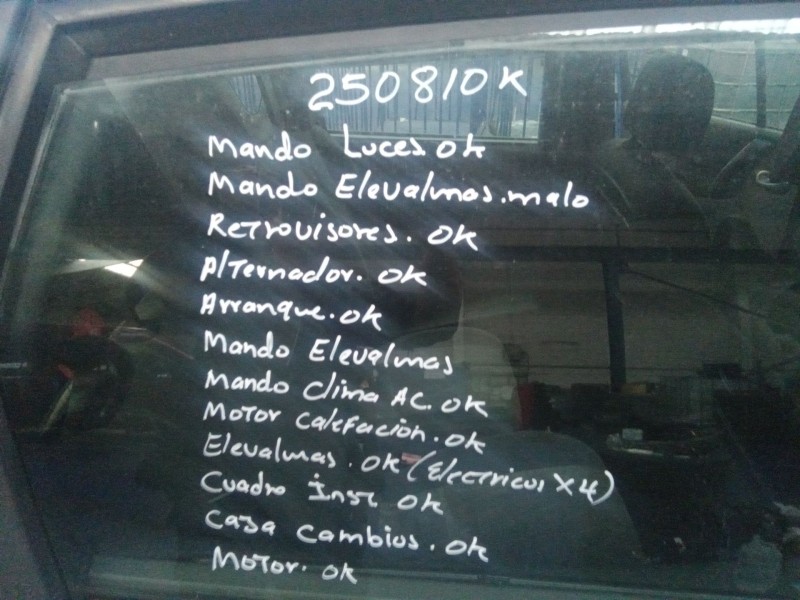 250810K
Mando Luces ok
Mando Elevalunas.malo
Retrovisores. OK
Alternador. OK
Arranque. ok
Mando Elevalunas
Mando clima AC. OK
Motor calefacion. ok
Elevalunas. OK (Electricos X 4)
Cuadro Inst OK
Caja Cambios. ok
Motor. ok